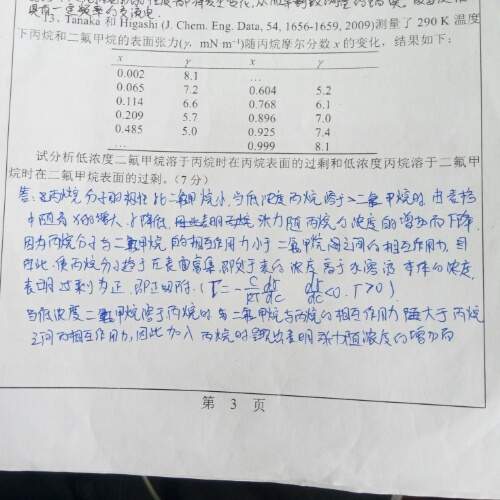 具有一定频率的
13. Tanaka 和 Higashi (J. Chem. Eng. Data, 54, 1656-1659, 2009)测量了 290 K 温度
下丙烷和二氟甲烷的表面张力(γ, mN m⁻¹)随丙烷摩尔分数 x 的变化，结果如下：
x γ x γ
0.002 8.1 …
0.065 7.2 0.604 5.2
0.114 6.6 0.768 6.1
0.209 5.7 0.896 7.0
0.485 5.0 0.925 7.4
… 0.999 8.1
试分析低浓度二氟甲烷溶于丙烷时在丙烷表面的过剩和低浓度丙烷溶于二氟甲
烷时在二氟甲烷表面的过剩。（7 分）
答：丙烷分子的极性比二氟甲烷小，当低浓度丙烷溶于二氟甲烷时，由表格
中随着X的增大，γ降低，表明丙烷张力随丙烷的浓度的增加而下降，
因为丙烷分子与二氟甲烷的相互作用力小于二氟甲烷间之间的相互作用力，因
此，使丙烷分子趋于在表面富集，即处于表面浓度高于本体的浓度，
表明过剩为正，即正吸附。(Γ=-C/RT dγ/dC dγ/dC<0，Γ>0)
当低浓度二氟甲烷溶于丙烷时，与二氟甲烷与丙烷的相互作用力大于丙烷
之间的相互作用力，因此加入丙烷时表明张力随浓度的增加而
第 3 页